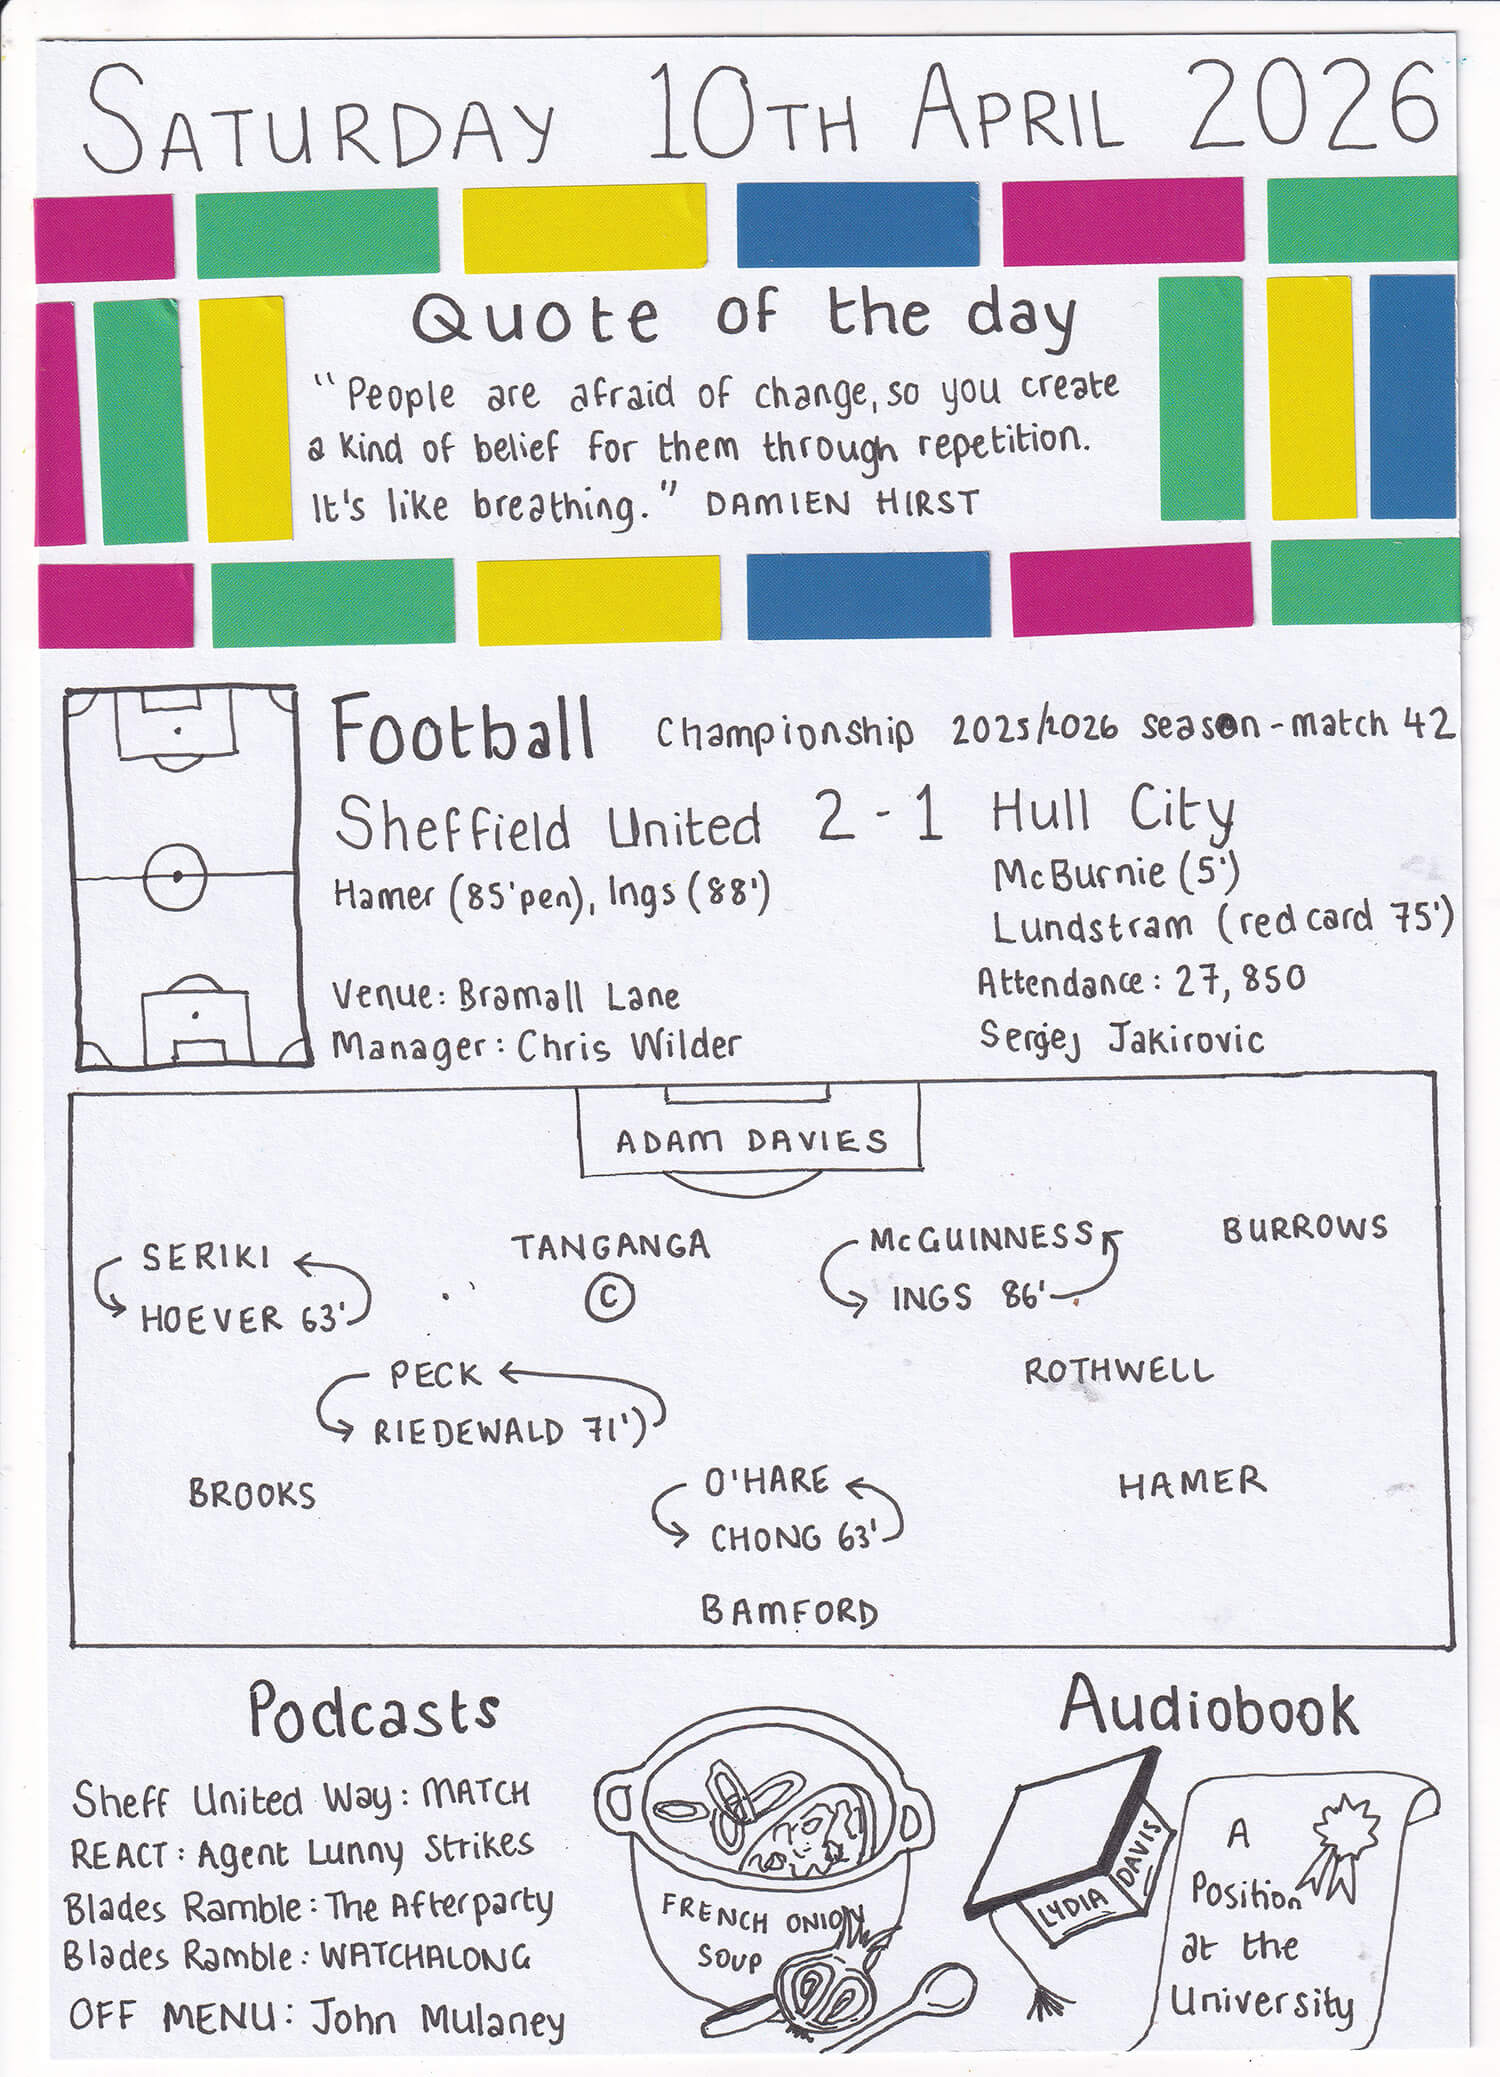 SATURDAY 10TH APRIL 2026
Quote of the day
"People are afraid of change, so you create
a kind of belief for them through repetition.
It's like breathing." DAMIEN HIRST
Football Championship 2025/2026 season - match 42
Sheffield United 2 - 1 Hull City
Hamer (85'pen), Ings (88')
McBurnie (5')
Lundstram (red card 75')
Venue: Bramall Lane
Attendance: 27,850
Manager: Chris Wilder
Sergej Jakirovic
ADAM DAVIES
SERIKI
HOEVER 63'
TANGANGA
C
McGUINNESS
INGS 86'
BURROWS
PECK
RIEDEWALD 71')
ROTHWELL
BROOKS
O'HARE
CHONG 63'
HAMER
BAMFORD
Podcasts
Sheff United Way: MATCH
REACT: Agent Lunny Strikes
Blades Ramble: The Afterparty
Blades Ramble: WATCHALONG
OFF MENU: John Mulaney
FRENCH ONION
SOUP
Audiobook
LYDIA DAVIS
A
Position
at the
University